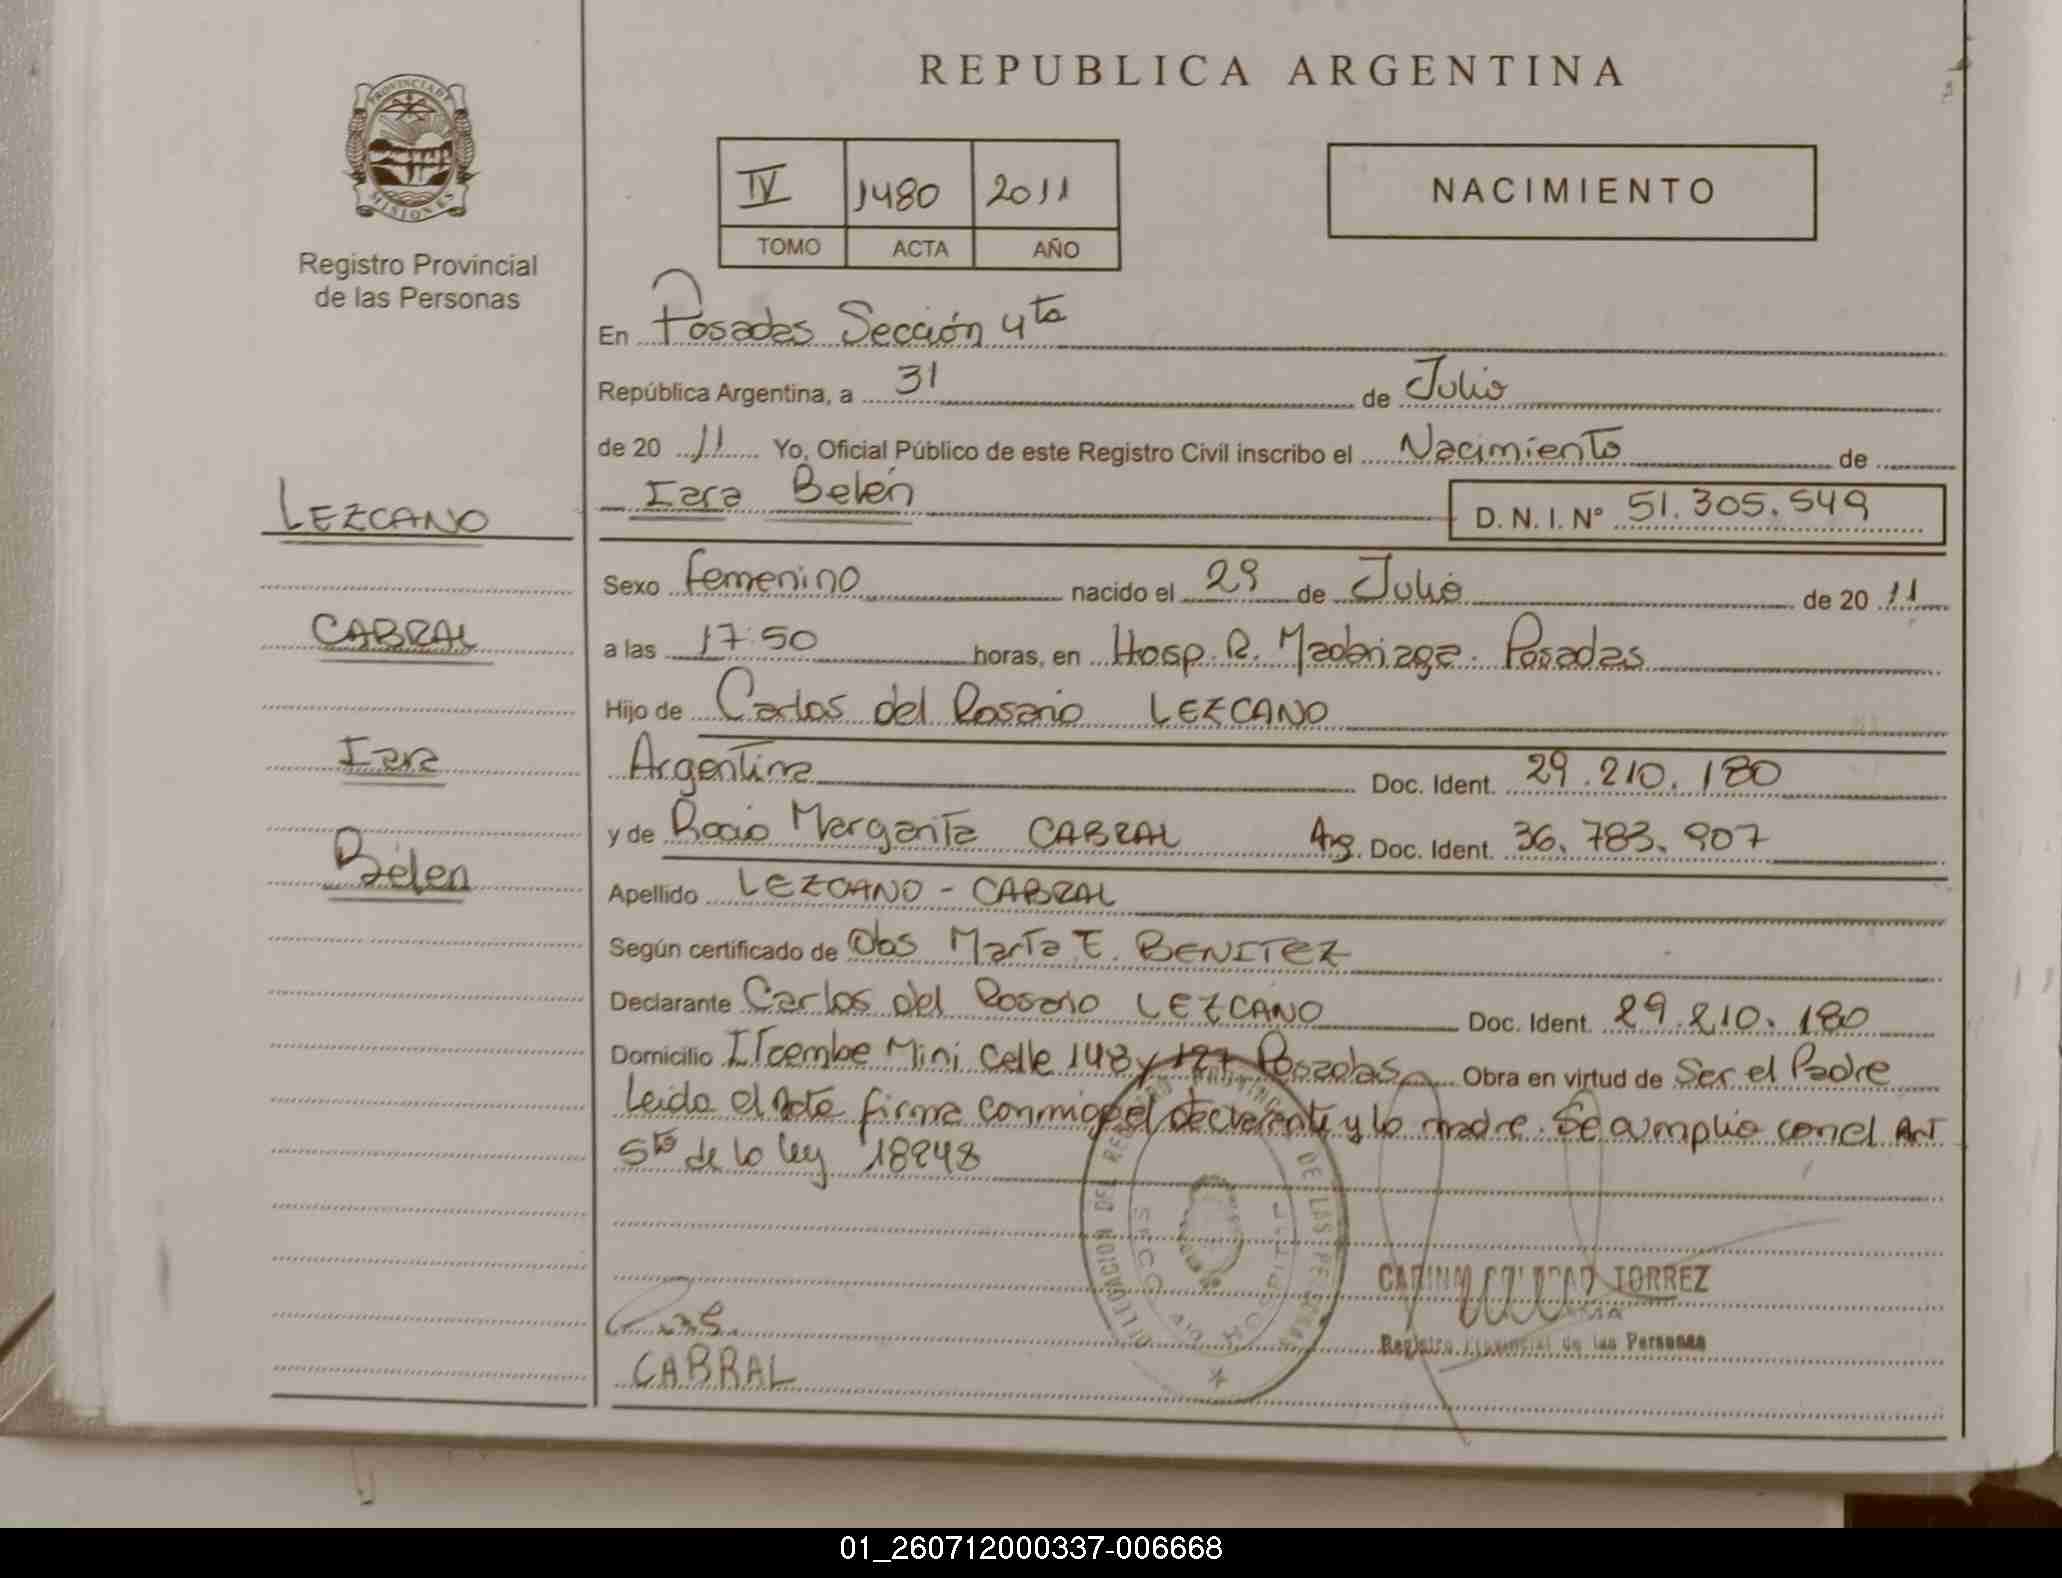 REPUBLICA ARGENTINA
PROVINCIA DE MISIONES
Registro Provincial
de las Personas
IV 1480 2011
TOMO ACTA AÑO
NACIMIENTO
En Posadas Sección 4ta
República Argentina, a 31 de Julio
de 20 11 Yo, Oficial Público de este Registro Civil inscribo el Nacimiento de
Iara Belén D. N. I. N° 51.305.549
LEZCANO
CABRAL
Iara
Belén
Sexo femenino nacido el 29 de Julio de 20 11
a las 17:50 horas, en Hosp. R. Madariaga. Posadas
Hijo de Carlos del Rosario LEZCANO
Argentina Doc. Ident. 29.210.180
y de Rocio Margarita CABRAL Arg. Doc. Ident. 36.783.907
Apellido LEZCANO - CABRAL
Según certificado de Obs Marta E. BENITEZ
Declarante Carlos del Rosario LEZCANO Doc. Ident. 29.210.180
Domicilio Itaembe Mini Calle 148 y 127 Posadas Obra en virtud de Ser el Padre
Leida el Acta firma conmigo el declarante y la madre. Se cumplio con el Art
5to de la ley 18248
DELEGACION DEL REGISTRO PROVINCIAL DE LAS PERSONAS
TORREZ
Registro Provincial de las Personas
CABRAL
01_260712000337-006668